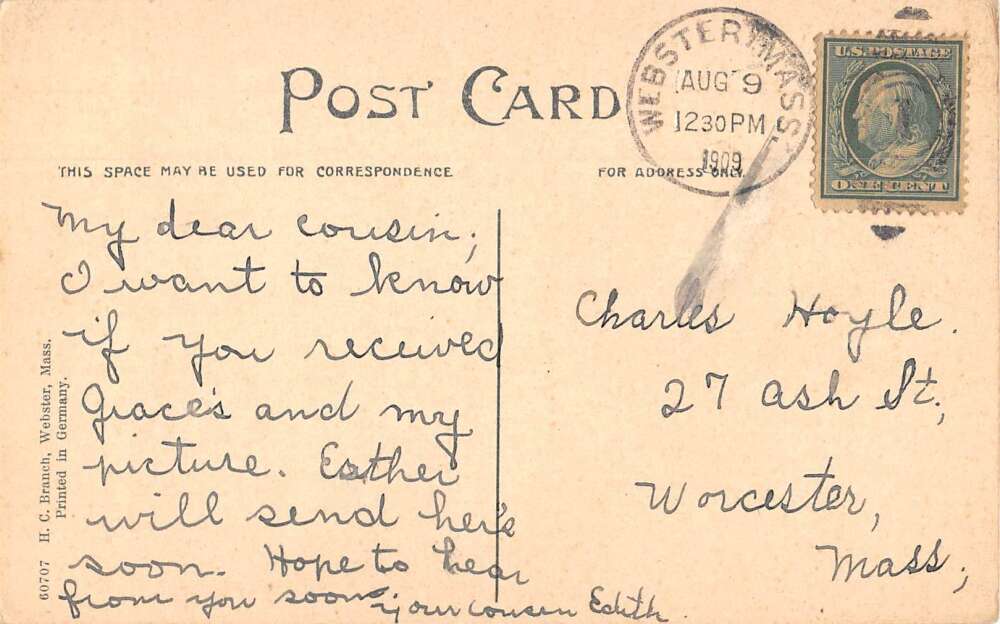 POST CARD
THIS SPACE MAY BE USED FOR CORRESPONDENCE
FOR ADDRESS ONLY.
WEBSTER, MASS.
AUG 9
1230 PM
1909
U.S. POSTAGE
ONE CENT
My dear cousin;
I want to know
if you received
Grace's and my
picture. Esther
will send her's
soon. Hope to hear
from you soon.
your cousin Edith.
Charles Hoyle.
27 Ash St.,
Worcester,
Mass.,
60707 H. C. Branch, Webster, Mass.
Printed in Germany.